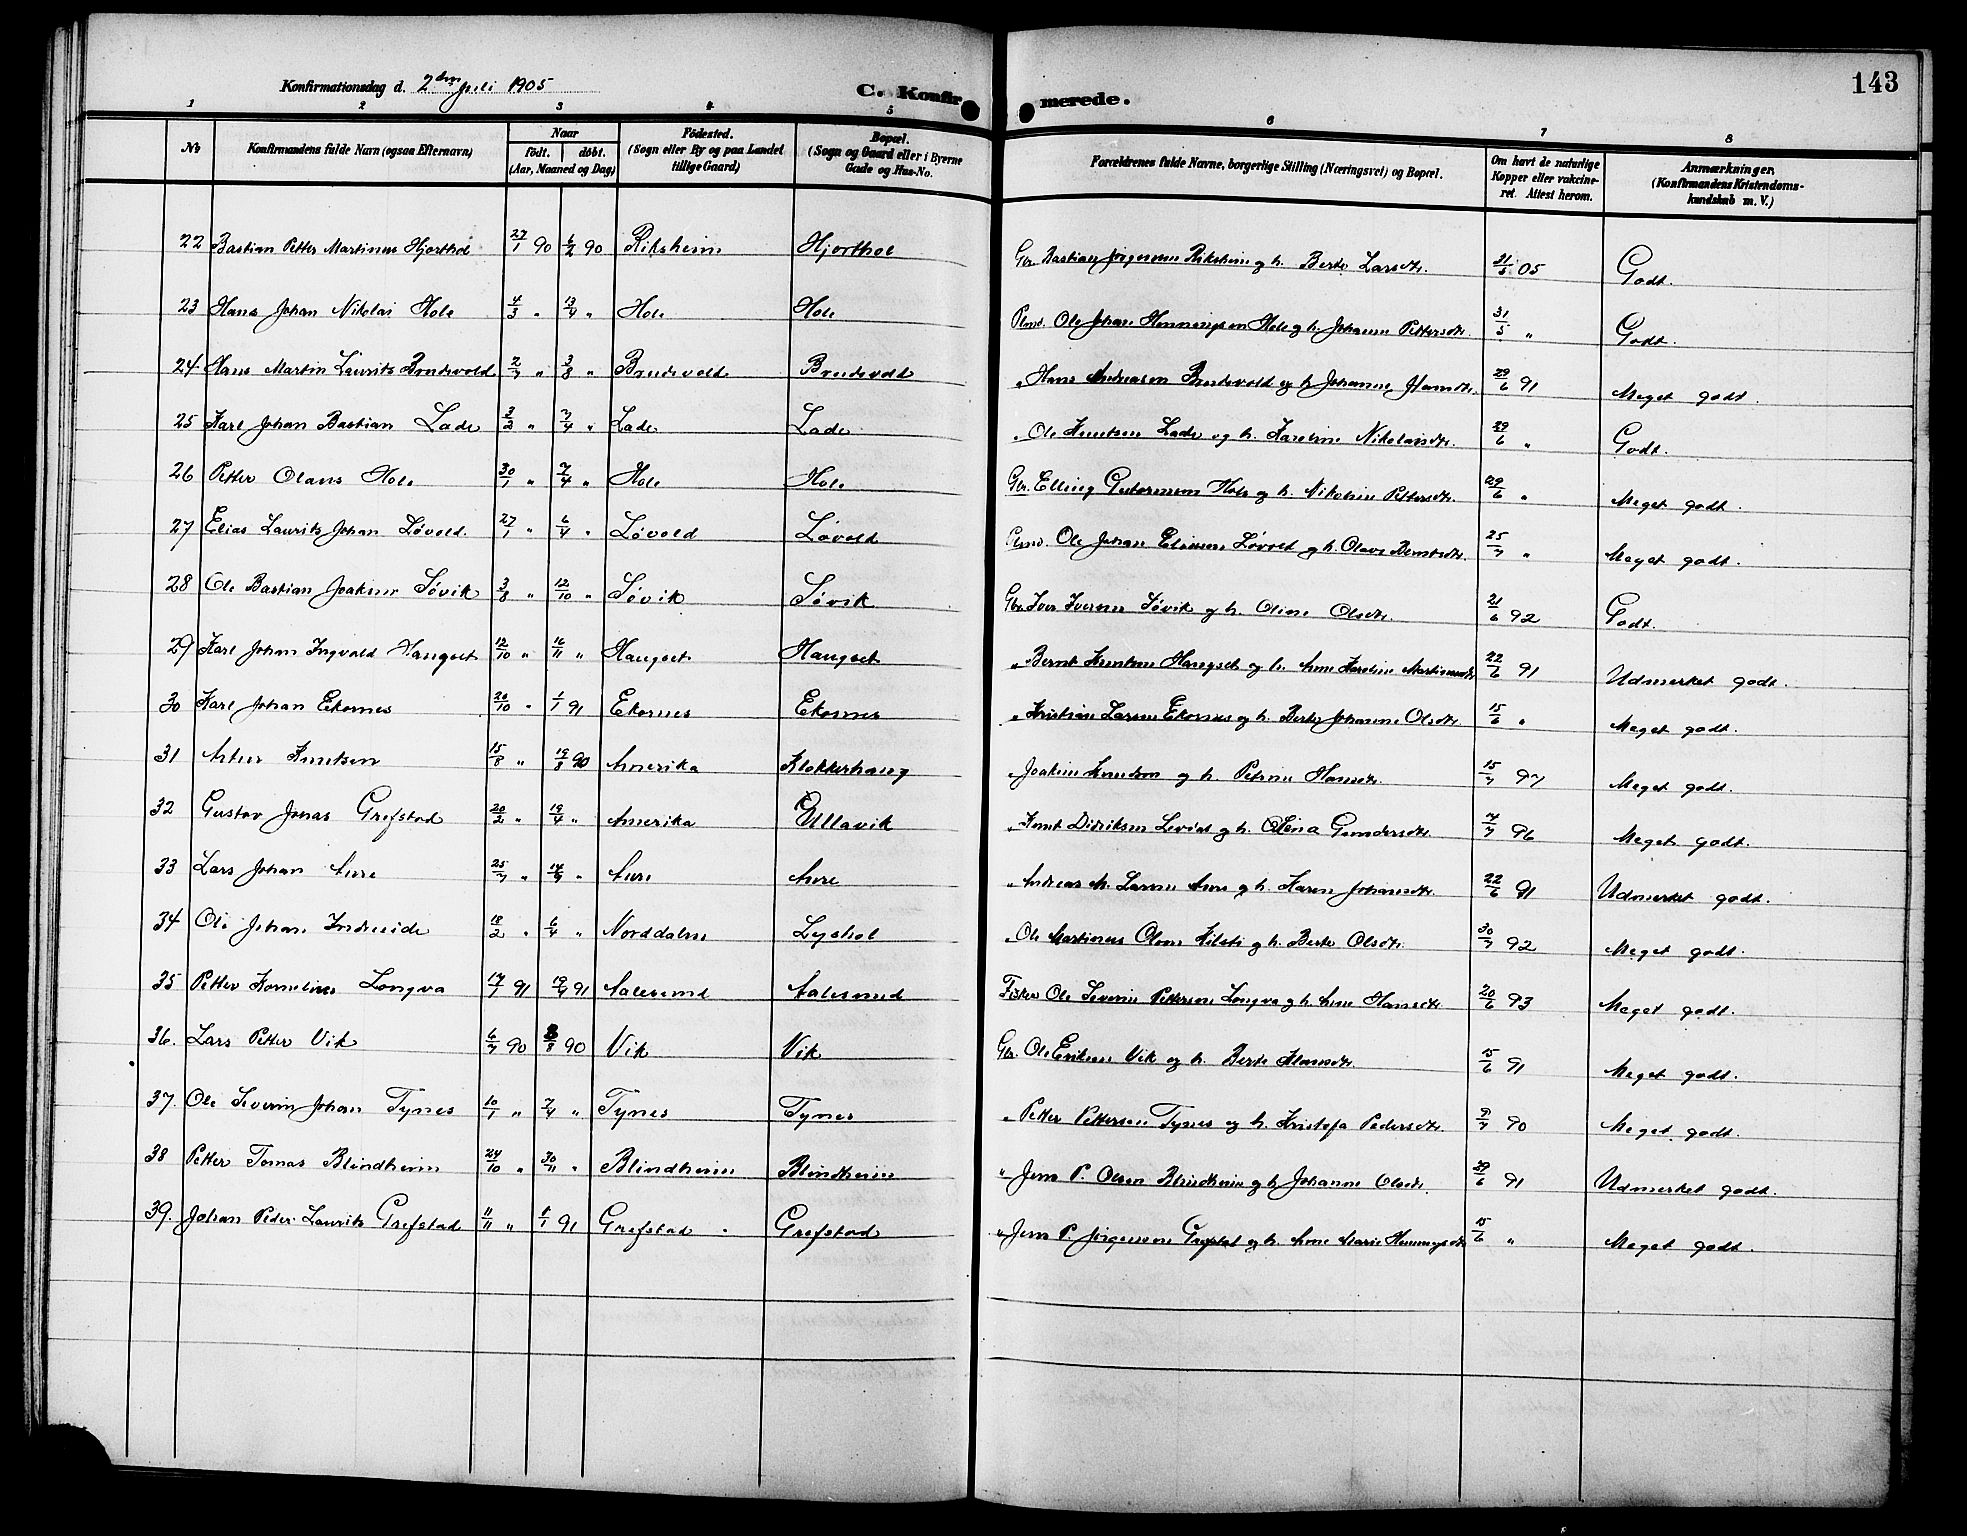 143
Konfirmationsdag d. 2den Juli 1905
C. Konfirmerede.
1 2 3 4 5 6 7 8
No
Konfirmandens fulde Navn (ogsaa Efternavn)
Naar
födt. döbt.
(Aar, Maaned og Dag)
Födested.
(Sogn eller By og paa Landet
tillige Gaard)
Bopæl.
(Sogn og Gaard eller i Byerne
Gade og Hus-No.
Forældrenes fulde Navne, borgerlige Stilling (Næringsvei) og Bopæl.
Om havt de naturlige
Kopper eller vakcine-
ret. Attest herom.
Anmærkninger.
(Konfirmandens Kristendoms-
kundskab m. V.)
22 Bastian Petter Martinus Hjorthol 27/1 90 6/2 90 Riksheim Hjorthol Gbr. Bastian Jörgensen Riksheim og h. Berte Larsdtr. 31/5 05 Godt.
23 Hans Johan Nikolai Hole 4/3 " 13/4 " Hole Hole Plmd. Ole Johan Henningsen Hole og h. Johanne Pettersdtr. 31/5 " Godt.
24 Hans Martin Laurits Brudevold 2/7 " 3/8 " Brudevold Brudevold " Hans Andreasen Brudevold og h. Johanne 29/6 91 Meget godt.
25 Karl Johan Bastian Lade 3/2 " 7/4 " Lade Lade " Ole Knutsen Lade og h. Karoline Nikolaidtr. 29/6 " Godt.
26 Petter Olaus Hole 30/1 " 7/4 " Hole Hole Gbr. Elling Guttormsen Hole og h. Nikoline Pettersdtr. 29/6 " Meget godt.
27 Elias Laurits Johan Løvold. 27/1 " 6/4 " Løvold Løvold Plmd. Ole Johan Eliassen Løvold og h. Olave Berntsdtr. 25/7 " Meget godt.
28 Ole Bastian Joakim Søvik 3/8 " 12/10 " Søvik Søvik Gbr. Iver Iversen Søvik og h. Oline Olsdtr. 21/6 92 Godt.
29 Karl Johan Ingvald Haugset 12/10 " 16/11 " Haugset Haugset " Bernt Knutsen Haugset og h. Anne Karoline Martinusdtr. 22/6 91 Udmerket godt.
30 Karl Johan Ekornes 20/10 " 1/1 91 Ekornes Ekornes " Kristian Larsen Ekornes og h. Berte Johanne Olsdtr. 15/6 " Meget godt.
31 Artur Knutsen 15/8 " 19/8 90 Amerika Klokkerhaug " Joakim Knutsen og h. Petrine Hansdtr. 15/7 97 Meget godt.
32 Gustav Jonas Grefstad 20/2 " 19/4 " Amerika Ullavik " Knut Didriksen og h. Olena Gundersdtr. 7/7 96 Meget godt.
33 Lars Johan Aure 25/7 " 14/9 " Aure Aure " Andreas M. Larsen Aure og h. Karen Johansdtr. 22/6 91 Udmerket godt.
34 Ole Johan Indreeide 18/2 " 6/4 " Norddalen Lyshol " Ole Martinus Olsen Kilsti og h. Berte Olsdtr. 30/7 92 Meget godt.
35 Petter Kornelius Longva 17/1 91 19/4 91 Aalesund Aalesund Fisker Ole Severin Pettersen Longva og h. Anne Hansdtr. 20/6 93 Meget godt.
36. Lars Petter Vik 6/7 90 3/8 90 Vik Vik Gbr. Ole Eriksen Vik og h. Berte 15/6 91 Meget godt.
37. Ole Severin Johan Tynes 10/1 " 7/4 " Tynes Tynes " Petter Pettersen Tynes og h. Kristofa Pedersdtr. 9/7 90 Meget godt.
38 Petter Tomas Blindheim 24/10 " 30/11 " Blindheim Blindheim " Jens P. Olsen Blindheim og h. Johanne Olsdtr. 29/6 91 Udmerket godt.
39. Johan Peder Laurits Grefstad 11/11 " 1/1 91 Grefstad Grefstad " Jens P. Jörgensen Grefstad og h. Anne Marie Henningsdtr. 15/6 " Meget godt.